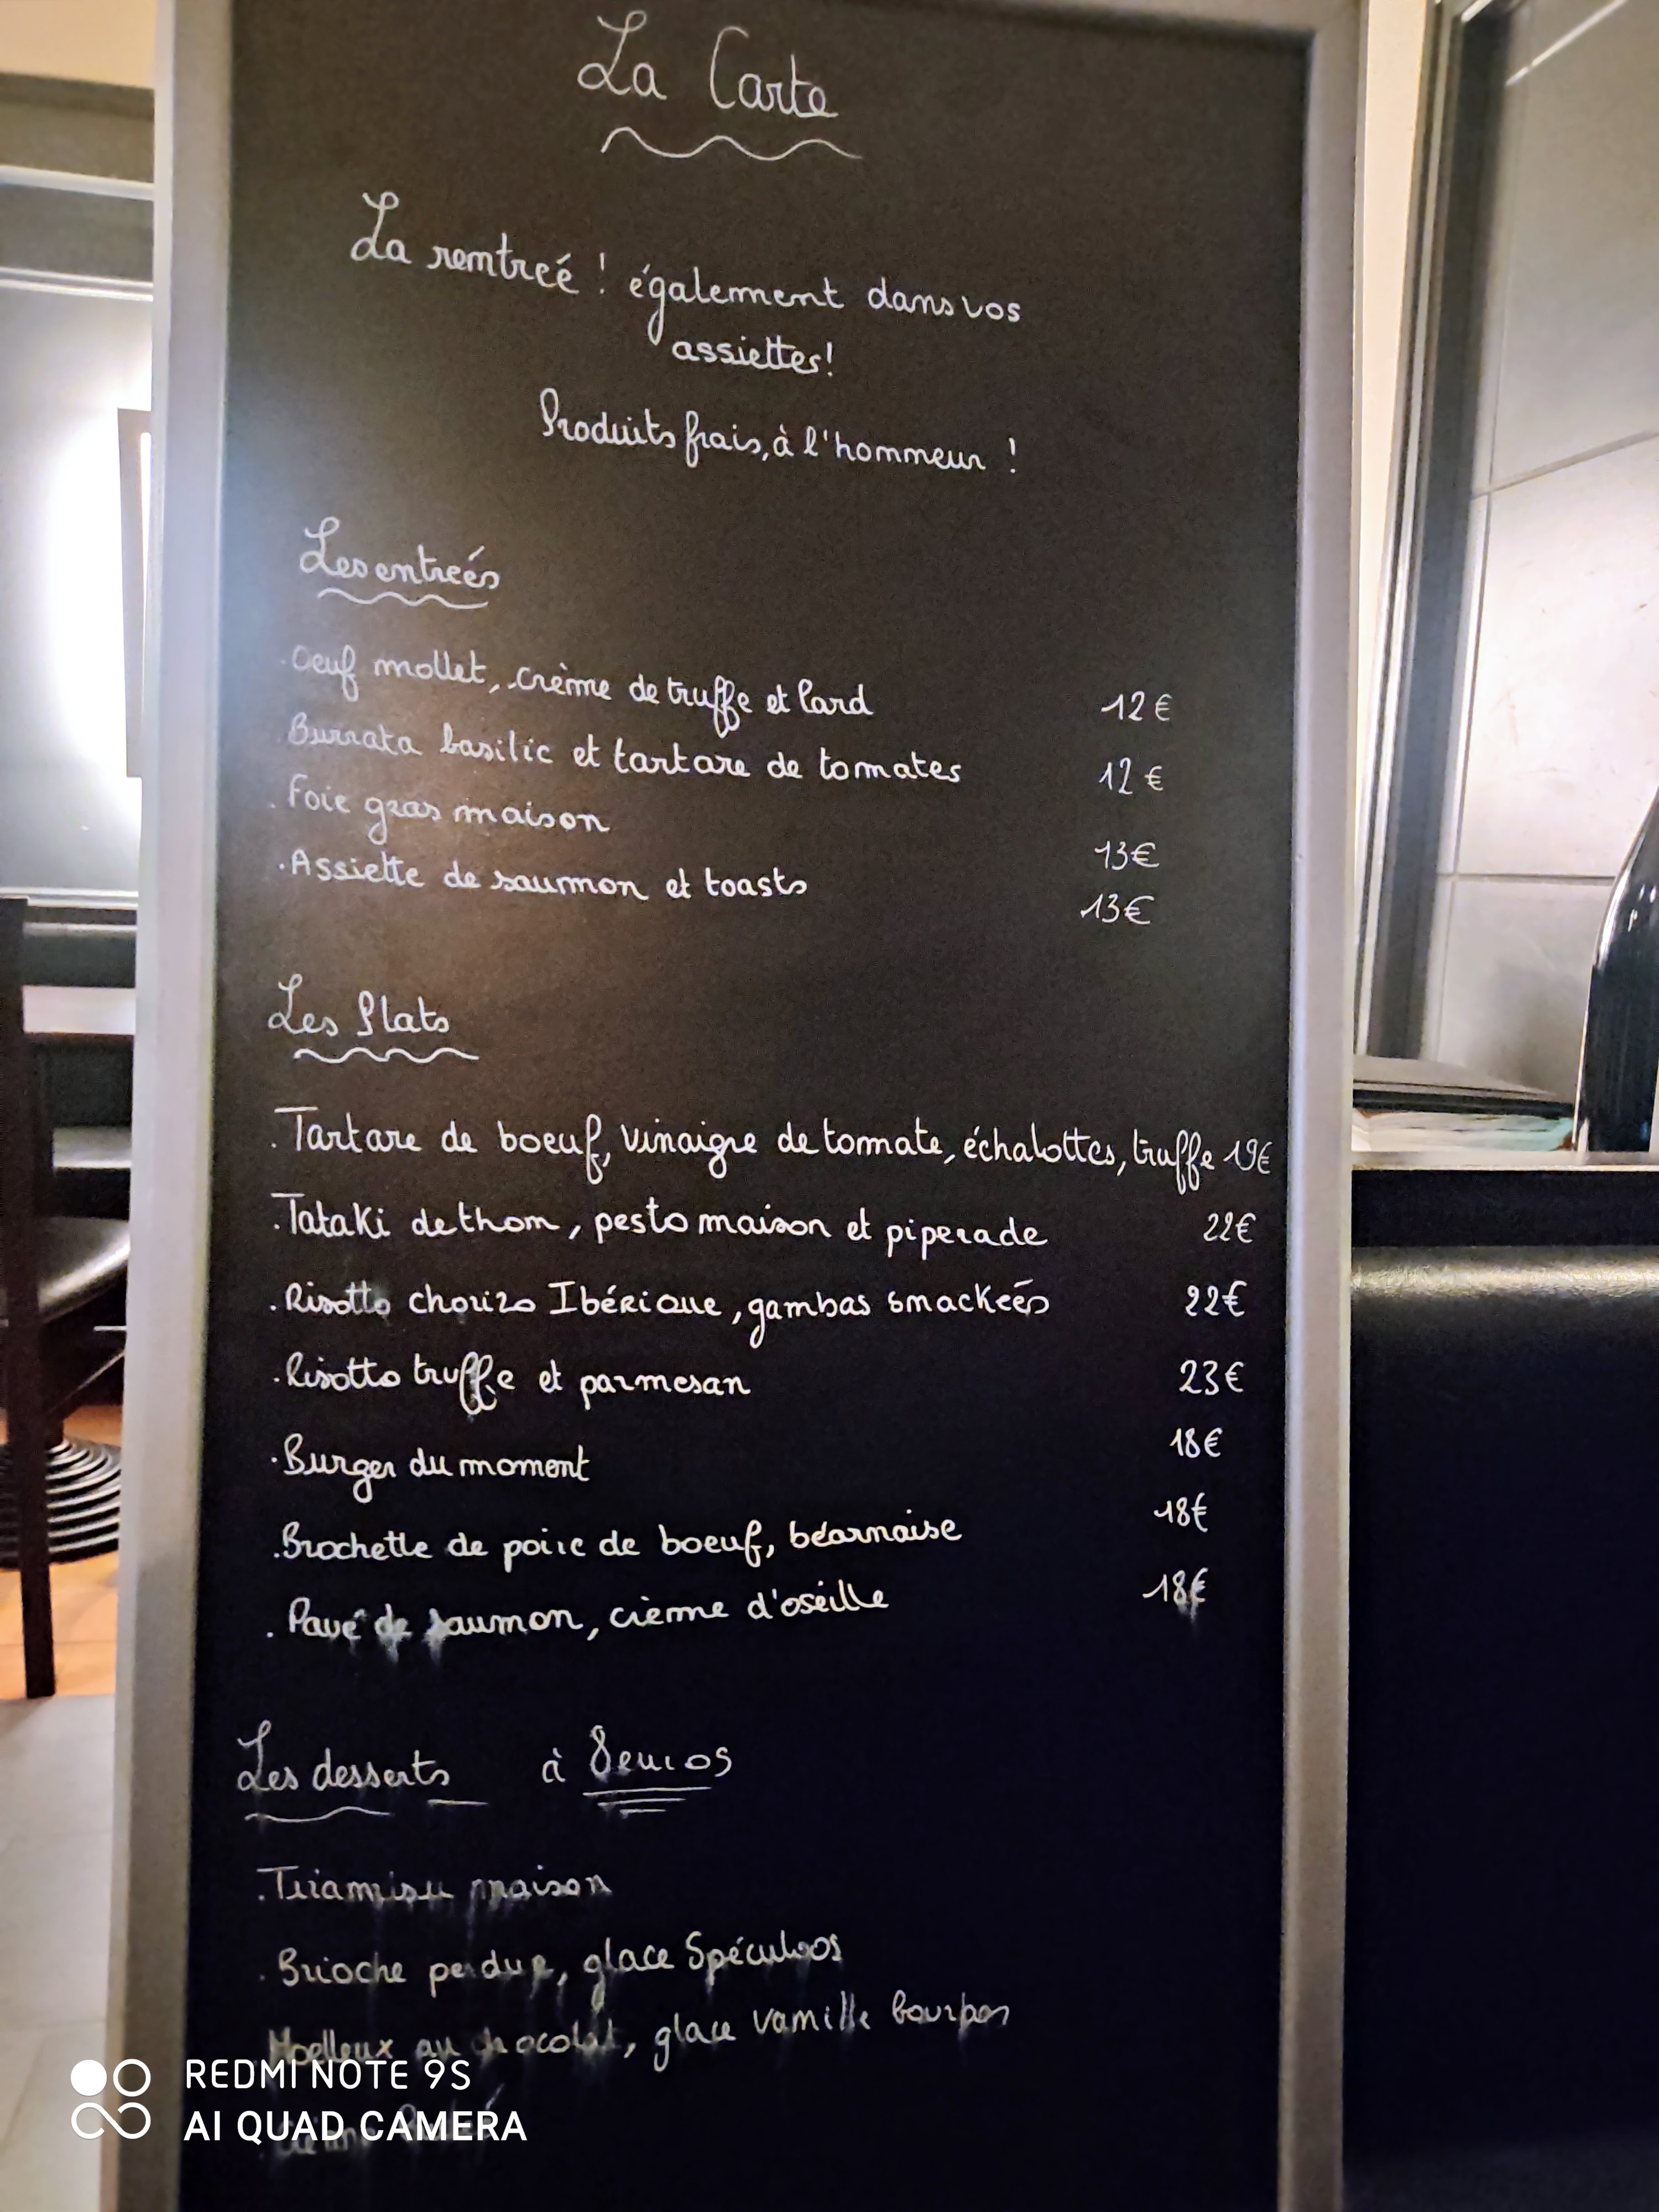 La Carte
La rentreé ! également dans vos
assiettes!
Produits frais, à l'honneur !
Les entreés
.Oeuf mollet, crème de truffe et lard 12€
Burrata basilic et tartare de tomates 12€
. Foie gras maison 13€
.Assiette de saumon et toasts 13€
Les Plats
.Tartare de boeuf, vinaigre de tomate, échalottes, truffe 19€
.Tataki de thon, pesto maison et piperade 22€
.Risotto chorizo Ibérique, gambas smackeés 22€
.Risotto truffe et parmesan 23€
.Burger du moment 18€
.Brochette de poire de boeuf, béarnaise 18€
. Pavé de saumon, crème d'oseille 18€
Les desserts à 8euros
.Tiramisu maison
. Brioche perdue, glace Spéculoos
Moelleux au chocolat, glace vanille bourbon
REDMI NOTE 9S
AI QUAD CAMERA